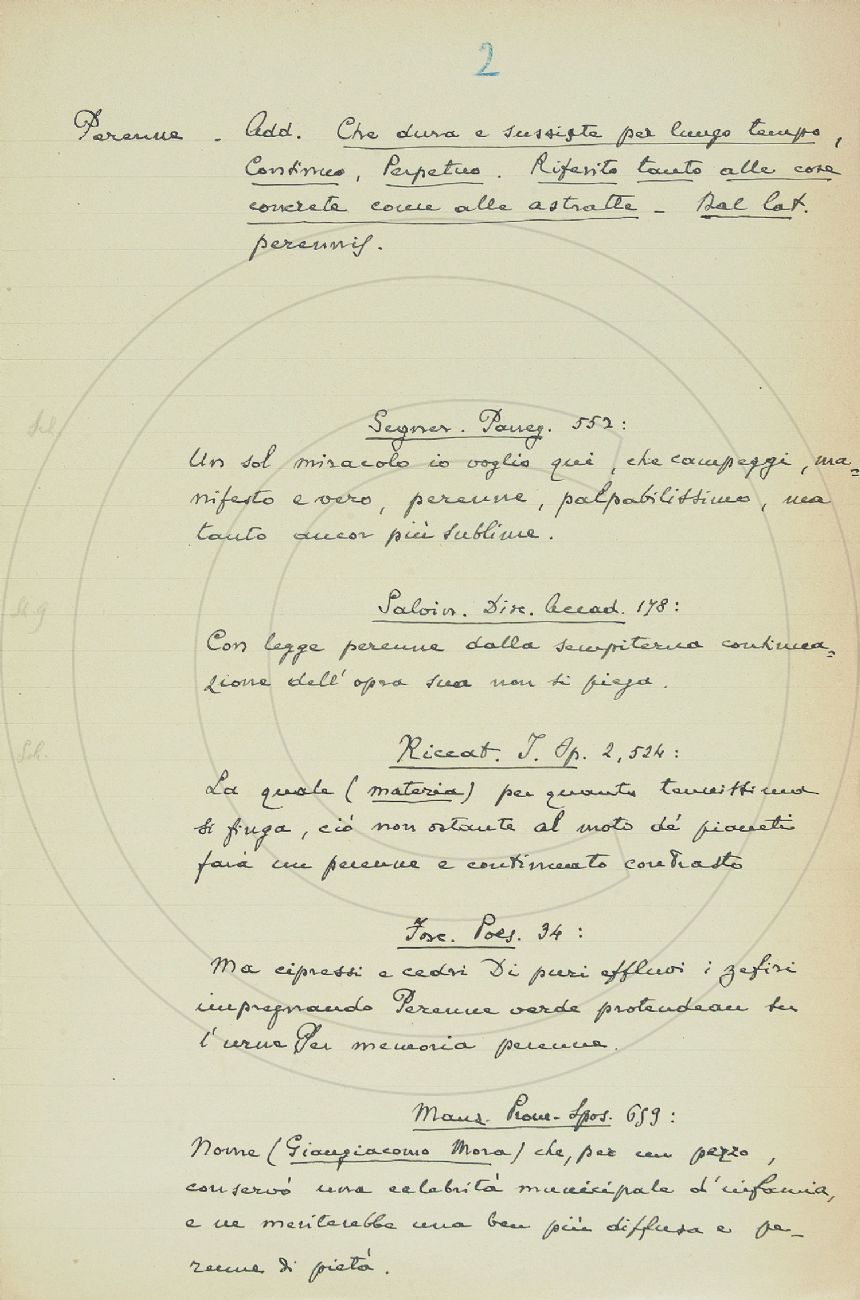 2
Perenne - Add. Che dura e sussiste per lungo tempo,
Continuo, Perpetuo. Riferito tanto alle cose
concrete come alle astratte - Dal lat.
perennis.
Segner. Paneg. 552:
Un sol miracolo io voglio qui, che campeggi, ma=
nifesto e vero, perenne, palpabilissimo, ma
tanto ancor più sublime.
Salvin. Disc. Accad. 178:
Con legge perenne dalla sempiterna continua=
zione dell'opra sua non si piega.
Riccat. J. Op. 2, 524:
La quale (materia) per quanto tenuissima
si finga, ciò non ostante al moto de' pianeti
farà un perenne e continuato contrasto
Fosc. Poes. 34:
Ma cipressi e cedri Di puri effluvi i zefiri
impregnando Perenne verde protendean su
l'urne Per memoria perenne.
Manz. Prom. Spos. 659:
Nome (Giangiacomo Mora) che, per un pezzo,
conservò una celebrità municipale d'infamia,
e ne meriterebbe una ben più diffusa e pe-
renne di pietà.